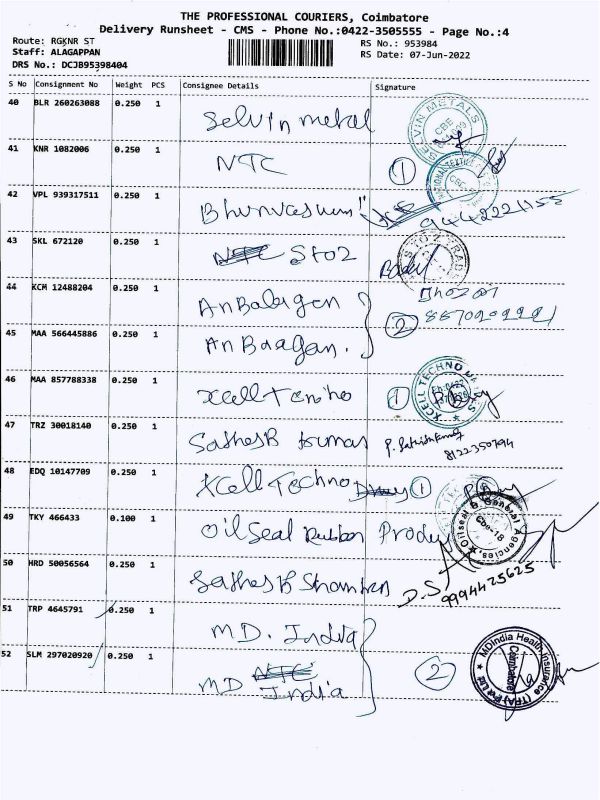 THE PROFESSIONAL COURIERS, Coimbatore
Delivery Runsheet - CMS - Phone No.:0422-3505555 - Page No.:4
Route: RGKNR ST
RS No.: 953984
Staff: ALAGAPPAN
RS Date: 07-Jun-2022
DRS No.: DCJB95398404
S No Consignment No Weight PCS Consignee Details Signature
40 BLR 260263088 0.250 1 Selvin metal SELVIN METALS CBE
41 KNR 1082006 0.250 1 NTC 1
42 VPL 939317511 0.250 1
43 SKL 672120 0.250 1 NTC STO2
44 KCM 12488204 0.250 1 AnBalagan
2
45 MAA 566445886 0.250 1 AnBaagan.
46 MAA 857788338 0.250 1 1 XCELL TECHNO
47 TRZ 30018140 0.250 1 8122350794
48 EDQ 10147709 0.250 1 XCell Techno 1
49 TKY 466433 0.100 1 Oil Seal Rubber Oilseal & General Agencies, Cbe-18
50 HRD 50056564 0.250 1 D.S
9994425625
51 TRP 4645791 0.250 1 MD. India
52 SLM 297020920 0.250 1 MD NTC India 2 MDIndia Health Insurance (TPA) Pvt Ltd Coimbatore